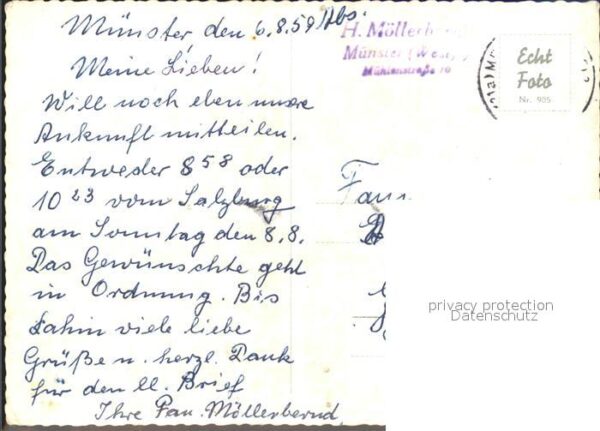 Münster den 6.8.59 Abs.
Meine Lieben!
Will noch eben unsere
Ankunft mitteilen.
Entweder 8 58 oder
10 23 vom Salzburg
am Sonntag den 8.8.
Das Gewünschte geht
in Ordnung. Bis
dahin viele liebe
Grüße u. herzl. Dank
für den ll. Brief
Ihre Fam. Möllerbernd
H. Möllerbernd
Münster (Westf.)
Mühlenstraße 10
Echt
Foto
Nr. 905
Fam
privacy protection
Datenschutz